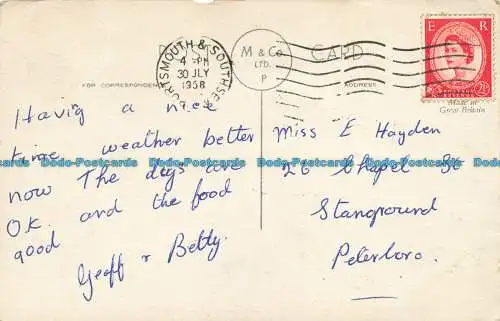 PORTSMOUTH & SOUTHSEA
4 - PM
30 JLY
1958
M & Co
LTD.
P
CARD
E R
2½
FOR CORRESPONDEN
ADDRESS
Made in
Great Britain
Having a nice
time weather better
now The digs are
O.K. and the food
good
Geoff & Betty.
Miss E Hayden
26 Chapel St
Stanground
Peterboro.
Dodo-Postcards Dodo-Postcards Dodo-Postcards Dodo-Postcards